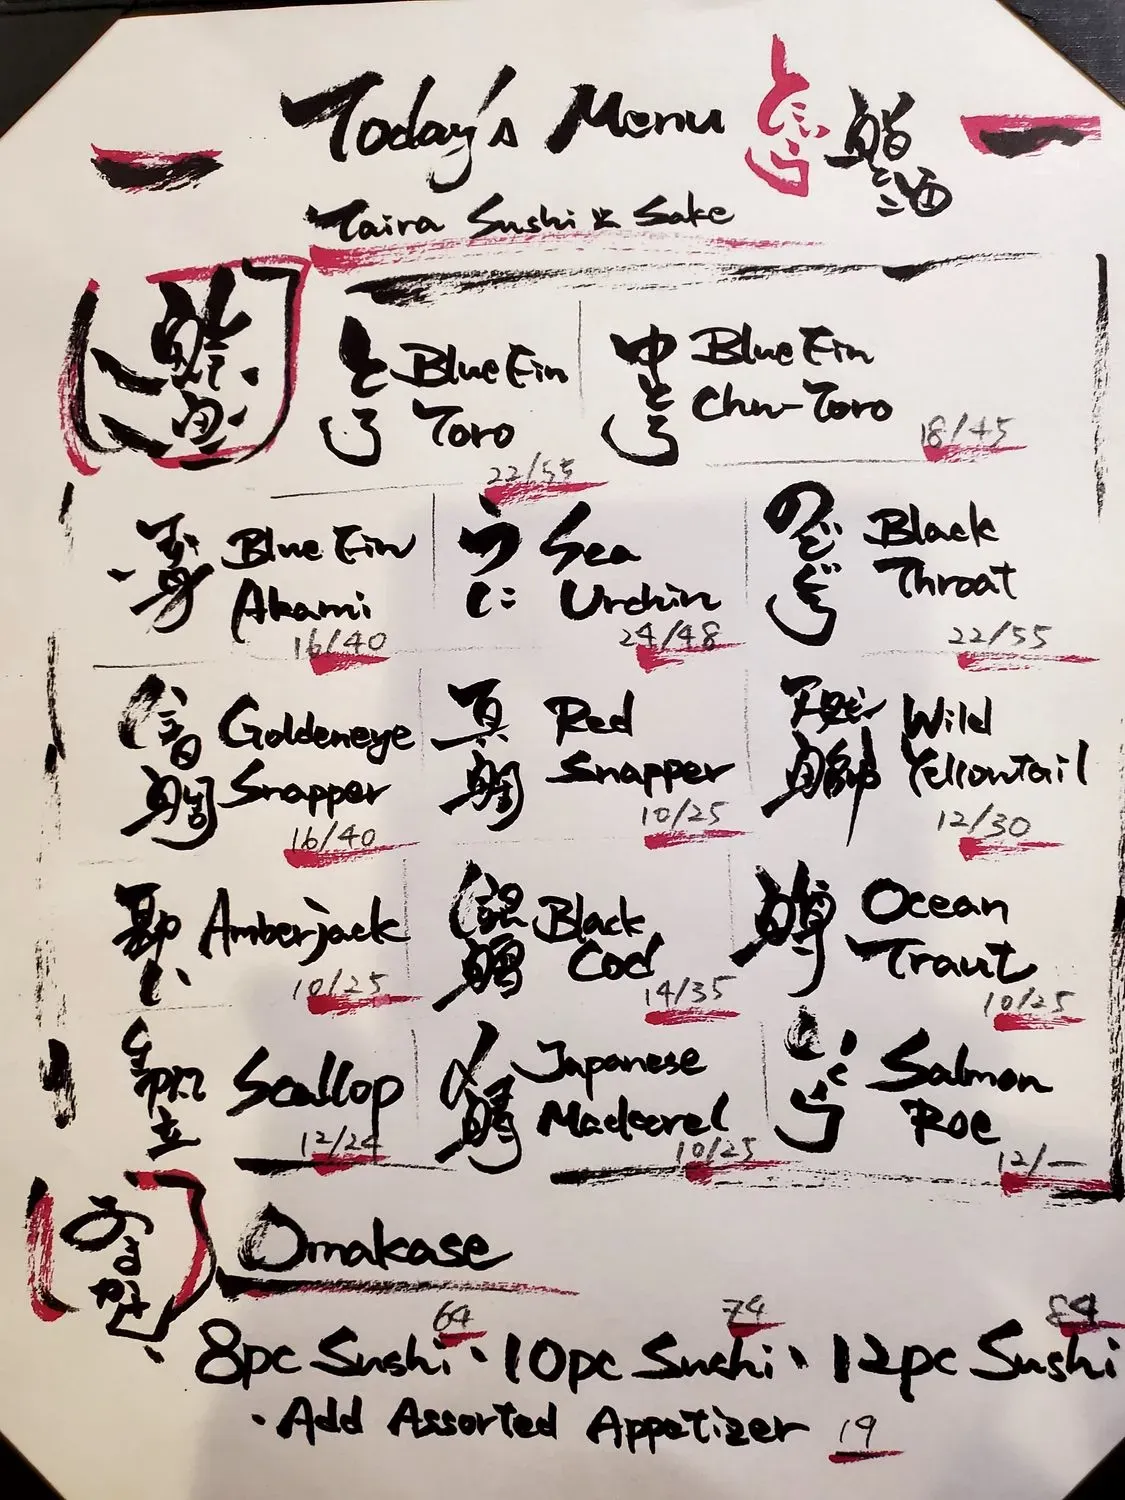 Today's Menu
鮨と酒
Taira Sushi & Sake
鮮魚
とろ
Blue Fin
Toro
22/55
中とろ
Blue Fin
Chu-Toro
18/45
赤身
Blue Fin
Akami
16/40
うに
Sea
Urchin
24/48
のどぐろ
Black
Throat
22/55
Goldeneye
Snapper
16/40
真鯛
Red
Snapper
10/25
Wild
Yellowtail
12/30
Amberjack
10/25
銀鱈
Black
Cod
14/35
鱒
Ocean
Traut
10/25
帆立
Scallop
12/24
〆鯖
Japanese
Mackerel
10/25
いくら
Salmon
Roe
12/—
おまかせ
Omakase
64 74 84
8pc Sushi、10pc Sushi、12pc Sushi
・Add Assorted Appetizer 19